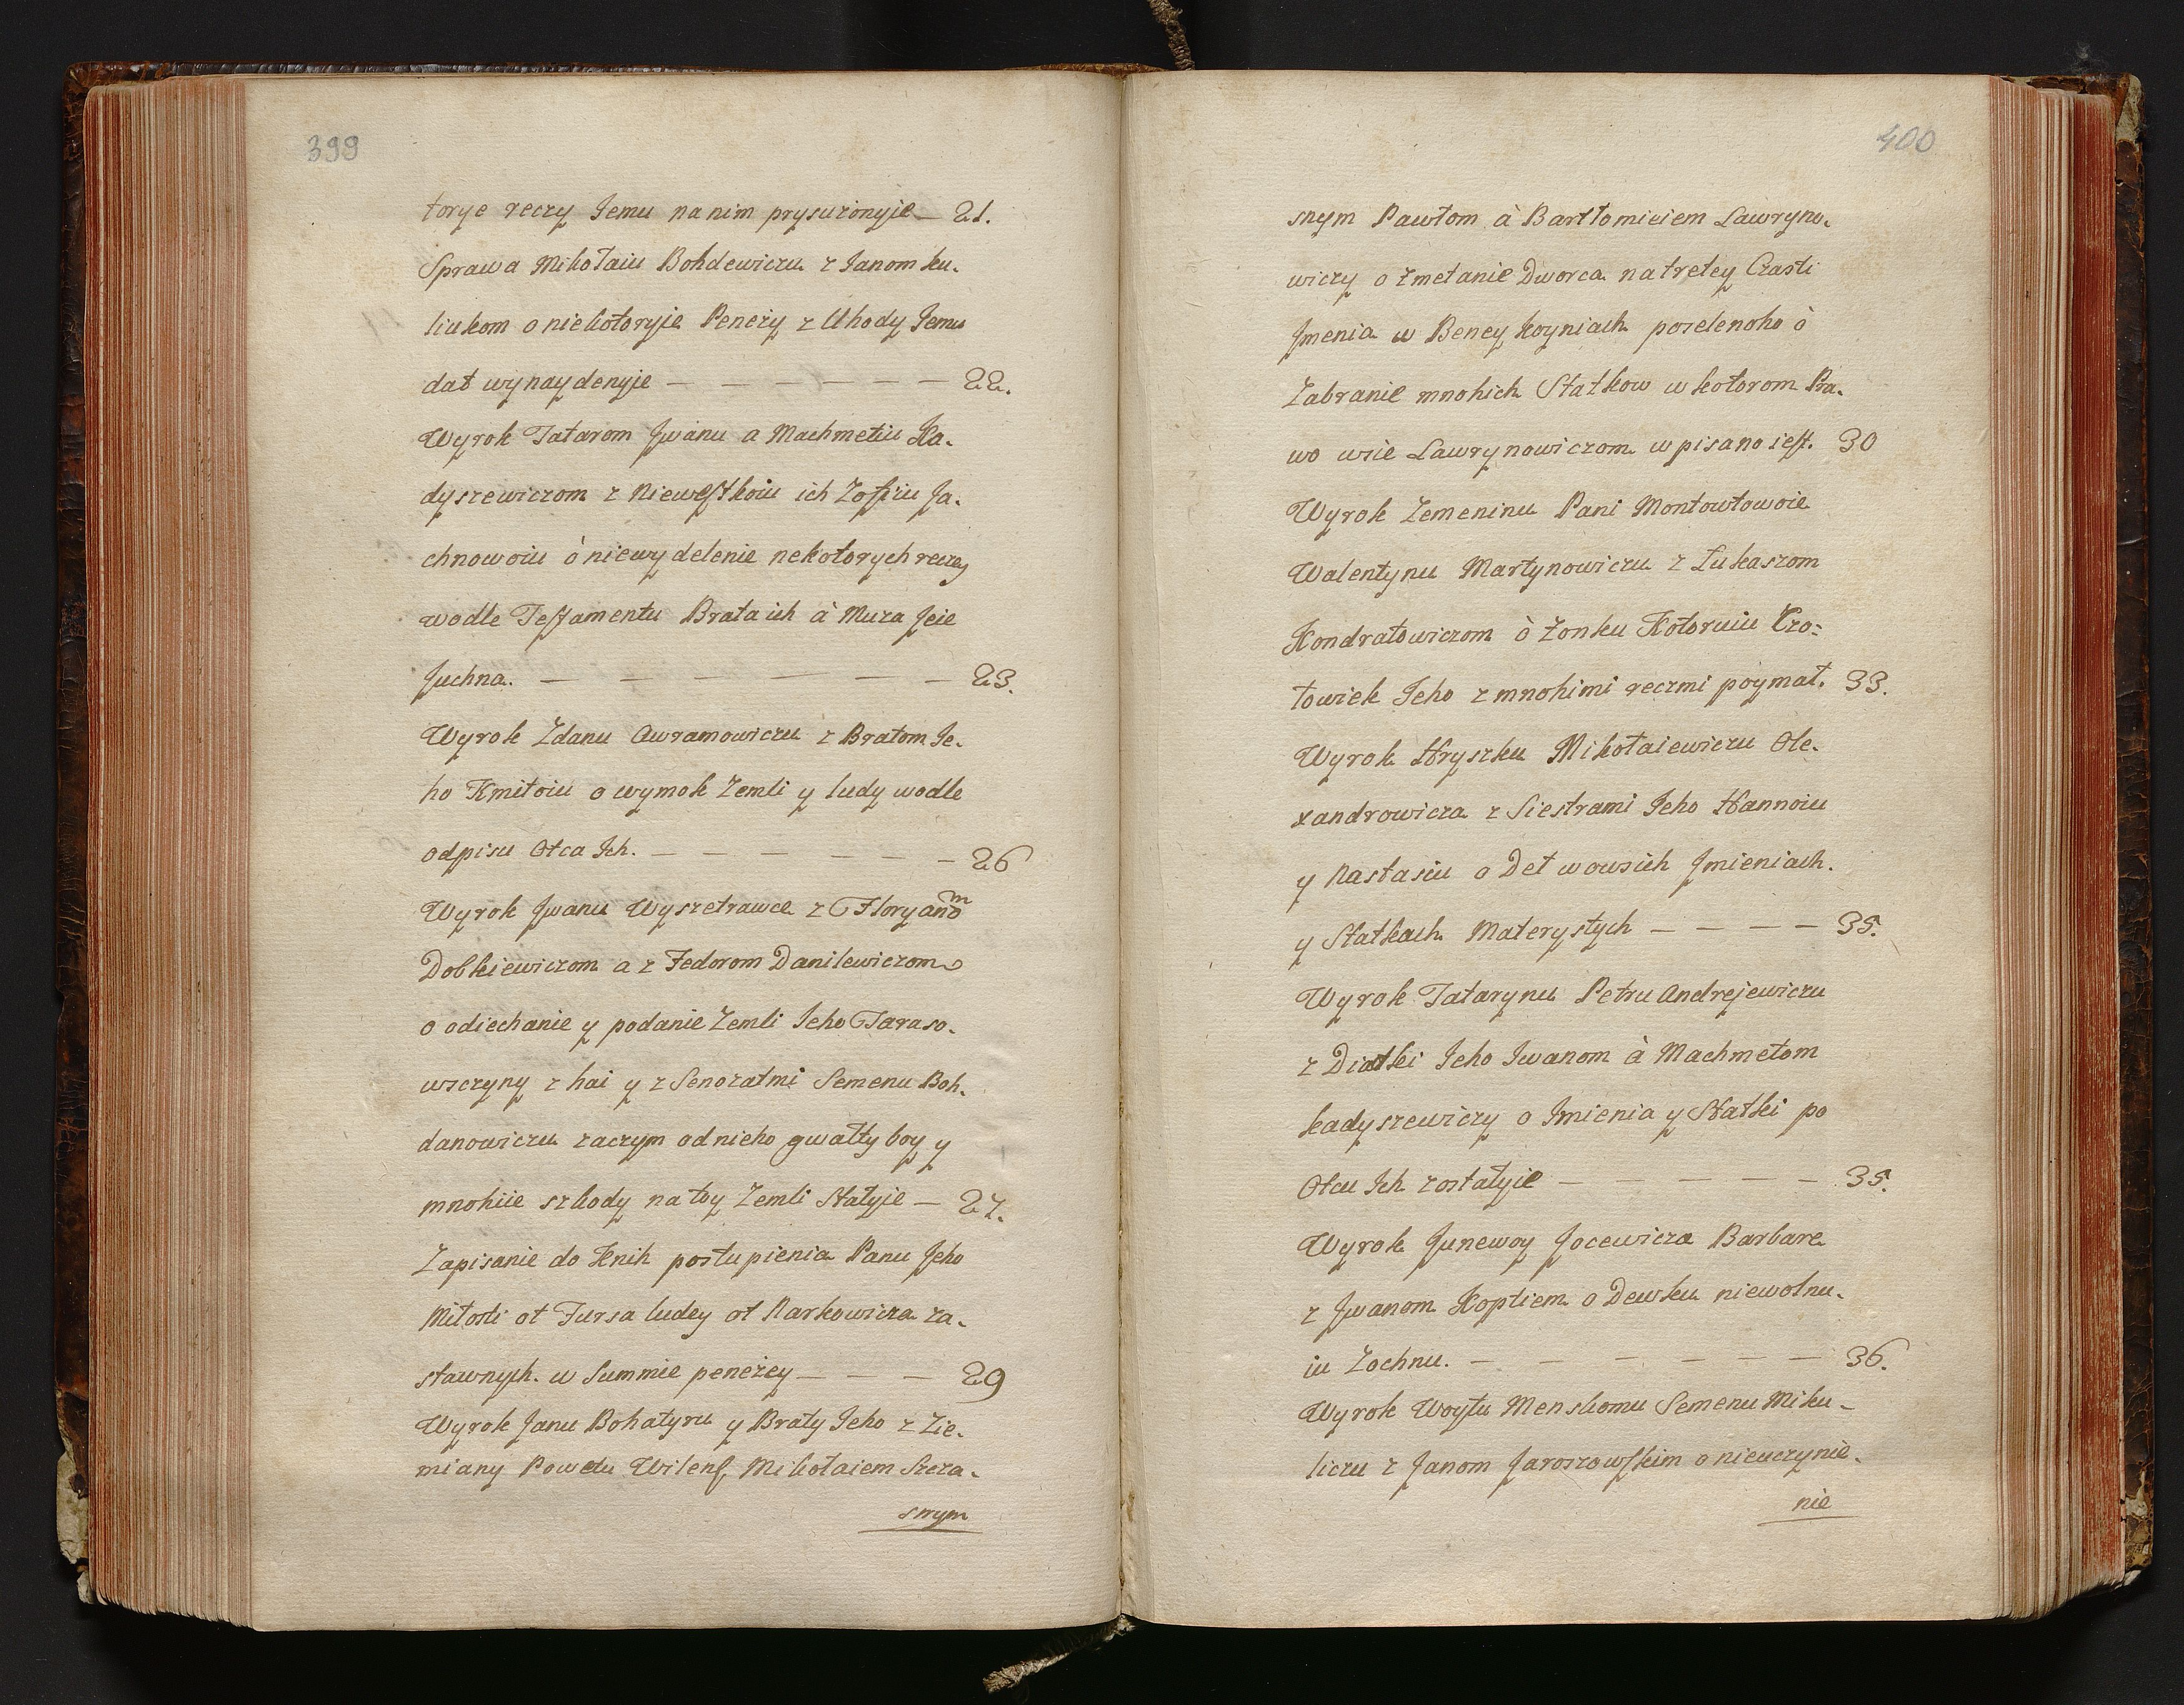 399
torye reczy Jemu na nim prysużonyje — 21.
Sprawa Mikołaiu Bohdewiczu z Janom ku-
liukom o niekotoryje Peneży z Uhody Jemu
dat wynaydenyje — — — — — — 22.
Wyrok Tatarom Jwanu a Machmetiu Ka-
dyszewiczom z Niewestkoiu ich Zofiiu Ja-
chnowoiu ò niewydelenie nekotorych reczey
wodle Testamentu Brata ich à Muża Jeie
Juchna. — — — — — — 23.
Wyrok Zdanu Awramowiczu z Bratom Je-
ho Kmitoiu o wymok Zemli y ludy wodle
odpisu Otca Jch. — — — — — — 26
Wyrok Jwanu Wyszetrawce z Floryanom
Dobkiewiczom a z Fedorom Danilewiczom
o odiechanie y podanie Zemli Jeho Taraso-
wsczyny z hai y z Senożatmi Semenu Boh-
danowiczu zaczym od nieho gwałty boy y
mnohiie szkody na toy Zemli Stałyje — 27.
Zapisanie do Knih postupienia Panu Jeho
Miłosti ot Fursa ludey ot Narkowicza za-
stawnych. w Summie peneżey — — — 29
Wyrok Janu Bohatyru y Braty Jeho z Zie-
miany Powetu Wilensk Mikołaiem Szcza-
snym
400
snym Pawłom à Bartłomieiem Lawryno-
wiczy o Zmetanie Dworca na tretey Czasti
Jmenia w Beney koyniach poselenoho ò
Zabranie mnohich Statkow w kotorom Pra-
wo wsie Lawrynowiczom wpisano iest. 30
Wyrok Zemeninu Pani Montowtowoie
Walentynu Martynowiczu z Łukaszom
Kondratowiczom ò Żonku Kotoruiu Czo-
łowiek Jeho z mnohimi reczmi poymał. 33.
Wyrok Hryszku Mikołaiewiczu Ole-
xandrowicza z Siestrami Jeho Hannoiu
y Nastasiu o Deł wowsich Jmieniach.
y Statkach Materystych — — — — 35.
Wyrok Tatarynu Petru Andrejewiczu
z Diatki Jeho Jwanom à Machmetom
kadyszewiczy o Jmienia y Statki po
Otcu Jch zostałyie — — — — — 35.
Wyrok Junewoy Jocewicza Barbare
z Jwanom Koptiem o Dewku niewolnu-
iu Zochnu. — — — — — — 36.
Wyrok Woytu Menskomu Semenu Miku-
liczu z Janom Jaroszowskim o nieuczynie-
nie